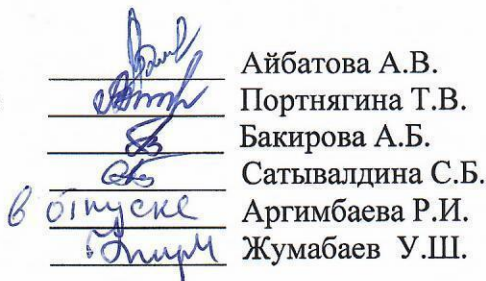 Айбатова А.В.
Портнягина Т.В.
Бакирова А.Б.
Сатывалдина С.Б.
в отпуске Аргимбаева Р.И.
Жумабаев У.Ш.